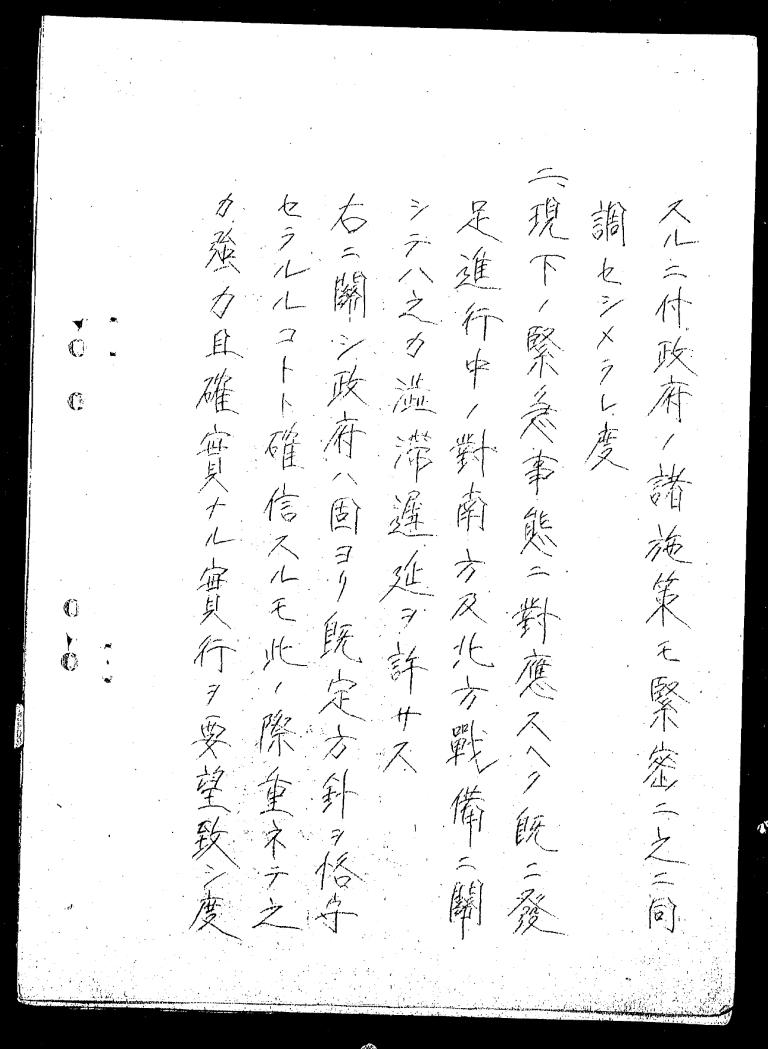 スルニ付政府ノ諸施策モ緊密ニ之ニ同
調セシメラレ度
二、現下ノ緊急事態ニ對應スヘク既ニ發
足進行中ノ對南方及北方戰備ニ關
シテハ之カ澁滯遲延ヲ許サス
右ニ關シ政府ハ固ヨリ既定方針ヲ恪守
セラルルコトト確信スルモ此ノ際重ネテ之
カ強力且確實ナル實行ヲ要望致シ度